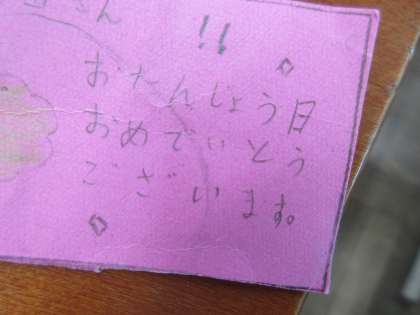 さん
!!
おたんじょう日
おめでいとう
ございます。